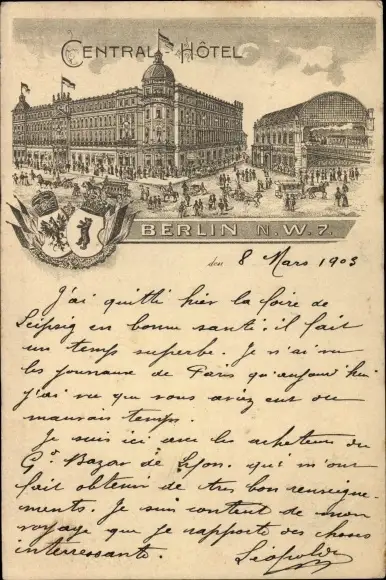 CENTRAL-HÔTEL
BERLIN N.W.7.
den 8 Mars 1903
J'ai quitté hier la foire de
Leipsig en bonne santé. il fait
un temps superbe. Je n'ai vu
les journaux de Paris qu'aujourd'hui
j'ai vu que vous aviez eut du
mauvais temps.
Je suis ici avec les acheteurs du
Gd Bazar de Lyon. qui m'ont
fait obtenir de très bon renseigne-
ments. Je suis content de mon
voyage que je rapporte des choses
interressante. Léopold